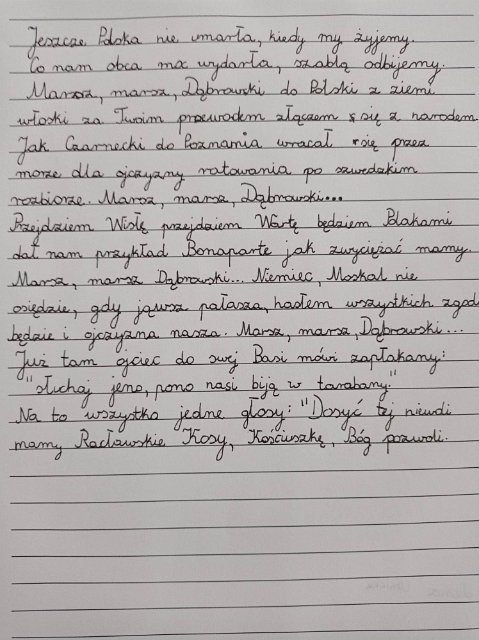 Jeszcze Polska nie umarła, kiedy my żyjemy.
Co nam obca moc wydarła, szablą odbijemy.
Marsz, marsz, Dąbrowski do Polski z ziemi
włoski za Twoim przewodem złączem się z narodem.
Jak Czarnecki do Poznania wracał się przez
morze dla ojczyzny ratowania po szwedzkim
rozbiorze. Marsz, marsz, Dąbrowski...
Przejdziem Wisłę przejdziem Wartę będziem Polakami
dał nam przykład Bonaparte jak zwyciężać mamy.
Marsz, marsz Dąbrowski... Niemiec, Moskal nie
osiędzie, gdy jąwsz pałasza, hasłem wszystkich zgoda
będzie i ojczyzna nasza. Marsz, marsz, Dąbrowski...
Już tam ojciec do swej Basi mówi zapłakany:
"słuchaj jeno, pono nasi biją w tarabany."
Na to wszystko jedne głosy: "Dosyć tej niewoli
mamy Racławskie Kosy, Kościuszkę, Bóg pozwoli.